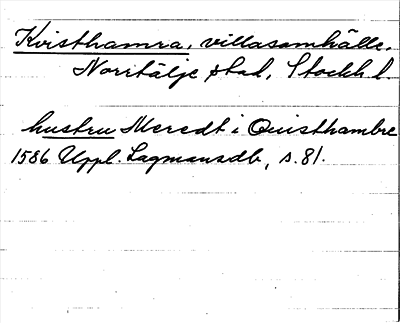 Kvisthamra, villasamhälle,
Norrtälje stad, Stockh. l.
hustru Meredt i Quisthambre
1586 Uppl. Lagmansdb, s. 81.